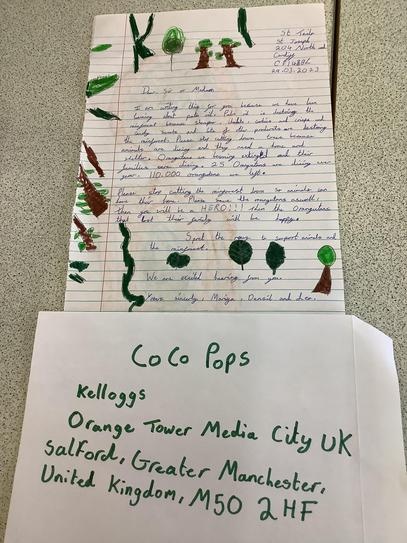 St Teilo
St Joseph
204 North rd
Cardiff
29.03.2023
Dear Sir or Madam
I am writing this for you because we have been
learning about palm oil. Palm oil is destroying the
rainforest because shampoo, biscuits, cookies and crisps and
of the products are destroying
the rainforest. Please stop cutting down trees because
animals are dying and they need a home and
shelter. Orangutans are becoming extinct and their
families were dying. 25 Orangutans are dying ever
year. 110.000 orangutans are left.
Please stop cutting the rainforest down so animals can
have their home. Please leave the orangutans
then you will be a HERO!!! the Orangutans
that lost their family will be happy.
Spread the to support animals and
the rainforest.
We are excited hearing from you.
Yours sincerely, and
COCO POPS
Kelloggs
Orange Tower Media City UK
Salford, Greater Manchester,
United Kingdom, M50 2HF